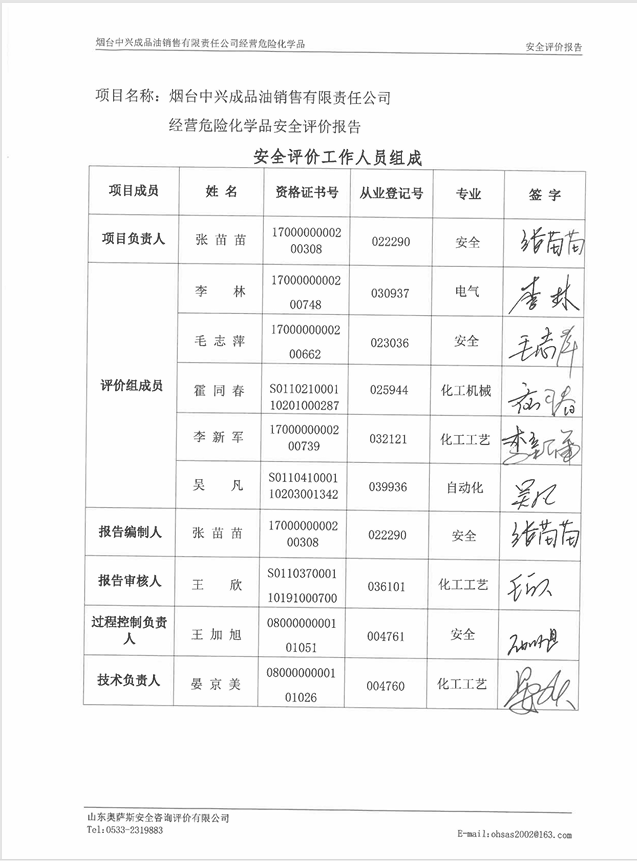 烟台中兴成品油销售有限责任公司经营危险化学品 安全评价报告
项目名称：烟台中兴成品油销售有限责任公司
经营危险化学品安全评价报告
安全评价工作人员组成
项目成员 姓 名 资格证书号 从业登记号 专业 签 字
项目负责人 张 苗 苗 17000000002 00308 022290 安全 张苗苗
评价组成员 李 林 17000000002 00748 030937 电气 李林
毛 志 萍 17000000002 00662 023036 安全 毛志萍
霍 同 春 S0110210001 10201000287 025944 化工机械
李 新 军 17000000002 00739 032121 化工工艺 李新军
吴 凡 S0110410001 10203001342 039936 自动化 吴凡
报告编制人 张 苗 苗 17000000002 00308 022290 安全 张苗苗
报告审核人 王 欣 S0110370001 10191000700 036101 化工工艺 王欣
过程控制负责
人 王 加 旭 08000000001 01051 004761 安全
技术负责人 晏 京 美 08000000001 01026 004760 化工工艺
山东奥萨斯安全咨询评价有限公司
Tel:0533-2319883 E-mail:ohsas2002@163.com